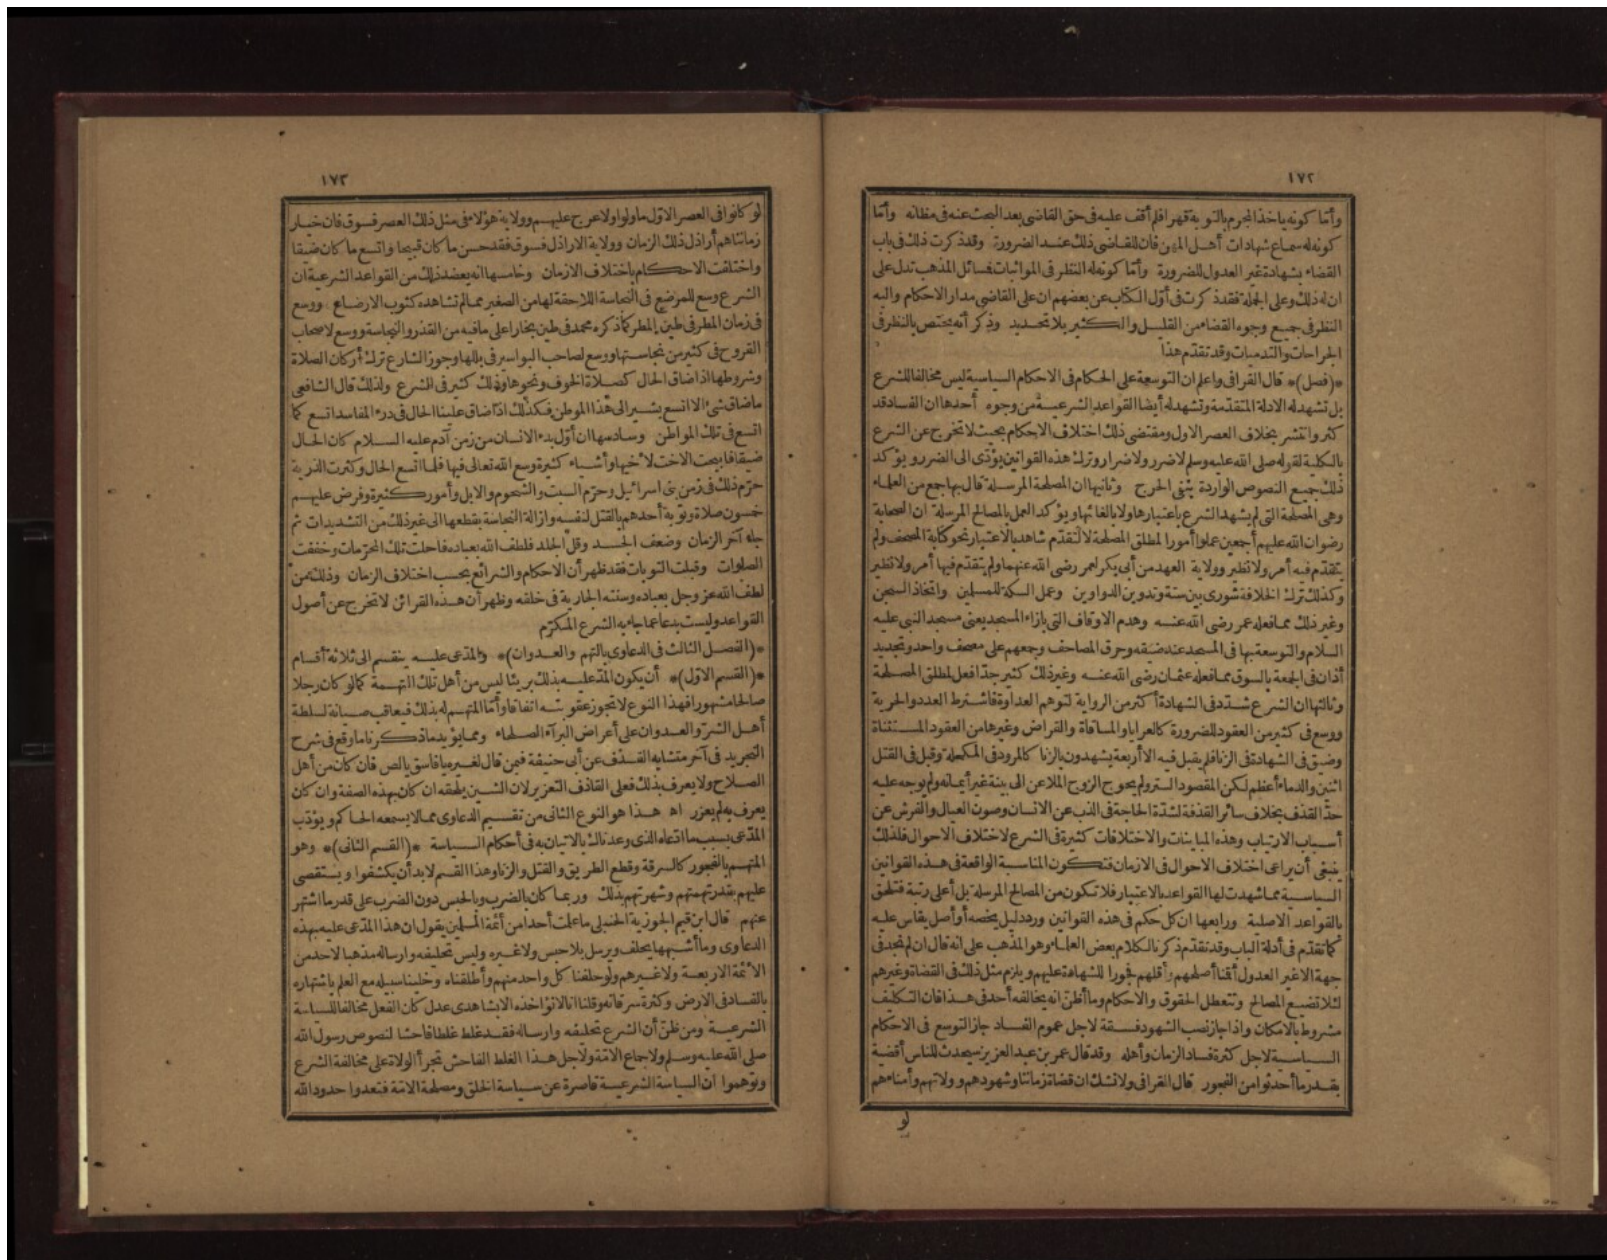 ١٧٢
وأما كونه ياخذ المجرم بالتوبة قهرا فلم أقف عليه فى حق القاضى بعد البحث عنه فى مظانه وأما
كونه له سماع شهادات أهل المهن فان للقاضى ذلك عند الضرورة وقد ذكرت ذلك فى باب
القضاء بشهادة غير العدول للضرورة وأما كونه له النظر فى المواثبات فسائل المذهب تدل على
ان له ذلك وعلى الجملة فقد ذكرت فى أول الكتاب عن بعضهم ان على القاضى مدار الاحكام واليه
النظر فى جميع وجوه القضاء من القليل والكثير بلا تحديد وذكر أنه يختص بالنظر فى
الجراحات والتدميات وقد تقدم هذا
*(فصل)* قال القرافى واعلم ان التوسعة على الحكام فى الاحكام السياسية ليس مخالفا للشرع
بل تشهد له الادلة المتقدمة وتشهد له أيضا القواعد الشرعية من وجوه أحدها ان الفساد قد
كثر وانتشر بخلاف العصر الاول ومقتضى ذلك اختلاف الاحكام بحيث لا تخرج عن الشرع
بالكلية لقوله صلى الله عليه وسلم لا ضرر ولا ضرار وترك هذه القوانين يؤدى الى الضرر ويؤكد
ذلك جميع النصوص الواردة بنفى الحرج وثانيها ان المصلحة المرسلة قال بها جمع من العلماء
وهى المصلحة التى لم يشهد الشرع باعتبارها ولا بالغائها ويؤكد العمل بالمصالح المرسلة ان الصحابة
رضوان الله عليهم أجمعين عملوا أمورا لمطلق المصلحة لا لتقدم شاهد بالاعتبار نحو كتابة المصحف ولم
يتقدم فيه أمر ولا نظير وولاية العهد من أبى بكر لعمر رضى الله عنهما ولم يتقدم فيها أمر ولا نظير
وكذلك ترك الخلافة شورى بين ستة وتدوين الدواوين وعمل السكة للمسلمين واتخاذ السجن
وغير ذلك مما فعله عمر رضى الله عنه وهدم الاوقاف التى بازاء المسجد يعنى مسجد النبى عليه
السلام والتوسعة بها فى المسجد عند ضيقه وحرق المصاحف وجمعهم على مصحف واحد وتجديد
أذان فى الجمعة بالسوق مما فعله عثمان رضى الله عنه وغير ذلك كثير جدا فعل لمطلق المصلحة
وثالثها ان الشرع شدد فى الشهادة أكثر من الرواية لتوهم العداوة فاشترط العدد والحرية
ووسع فى كثير من العقود للضرورة كالعرايا والمساقاة والقراض وغيرها من العقود المستثناة
وضيق فى الشهادة فى الزنا فلم يقبل فيه الا أربعة يشهدون بالزنا كالمرود فى المكحلة وقبل فى القتل
اثنين والدماء أعظم لكن المقصود الستر ولم يحوج الزوج الملاعن الى بينة غير أيمانه ولم يوجه عليه
حد القذف بخلاف سائر القذفة لشدة الحاجة فى الذب عن الانسان وصون العيال والفرش عن
أسباب الارتياب وهذه المباينات والاختلافات كثيرة فى الشرع لاختلاف الاحوال فلذلك
ينبغى أن يراعى اختلاف الاحوال فى الازمان فتكون المناسبة الواقعة فى هذه القوانين
السياسية مما شهدت لها القواعد بالاعتبار فلا تكون من المصالح المرسلة بل أعلى رتبة فتلحق
بالقواعد الاصلية ورابعها ان كل حكم فى هذه القوانين ورد دليل يخصه أو أصل يقاس عليه
كما تقدم فى أدلة الباب وقد تقدم ذكر نا لكلام بعض العلماء وهو المذهب على انه قال ان لم نجد فى
جهة الا غير العدول أقنا أصلحهم وأقلهم فجورا للشهادة عليهم ويلزم مثل ذلك فى القضاة وغيرهم
لئلا تضيع المصالح وتتعطل الحقوق والاحكام وما أظن انه يخالفه أحد فى هذا فان التكليف
مشروط بالامكان واذا جاز نصب الشهود فسقة لاجل عموم الفساد جاز التوسع فى الاحكام
السياسية لاجل كثرة فساد الزمان وأهله وقد قال عمر بن عبد العزيز سيحدث للناس أقضية
بقدر ما أحدثوا من الفجور قال القرافى ولا نشك ان قضاة زماننا وشهودهم وولاتهم وأمناءهم
لو
١٧٣
لو كانوا فى العصر الاول ما ولوا ولا عرج عليهم وولاية هؤلاء فى مثل ذلك العصر فسوق فان خيار
زماننا هم أراذل ذلك الزمان وولاية الاراذل فسوق فقد حسن ما كان قبيحا واتسع ما كان ضيقا
واختلفت الاحكام باختلاف الازمان وخامسها انه يعضد ذلك من القواعد الشرعية ان
الشرع وسع للمرضع فى النجاسة اللاحقة لها من الصغير مما لم تشاهده كثوب الارضاع ووسع
فى زمان المطر فى طين المطر كما ذكره محمد فى طين بخارا على ما فيه من القذر والنجاسة ووسع لاصحاب
القروح فى كثير من نجاستها ووسع لصاحب البواسير فى بللها وجوز الشارع ترك أركان الصلاة
وشروطها اذا ضاق الحال كصلاة الخوف ونحوها وذلك كثير فى الشرع ولذلك قال الشافعى
ما ضاق شئ الا اتسع يشير الى هذا الموطن فكذلك اذا ضاق علينا الحال فى درء المفاسد اتسع كما
اتسع فى تلك المواطن وسادسها ان أول بدء الانسان من زمن آدم عليه السلام كان الحال
ضيقا فابيحت الاخت لأخيها وأشياء كثيرة وسع الله تعالى فيها فلما اتسع الحال وكثرت الذرية
حرم ذلك فى زمن بنى اسرائيل وحرم السبت والشحوم والابل وأمور كثيرة وفرض عليهم
خمسون صلاة وتوبة أحدهم بالقتل لنفسه وازالة النجاسة بقطعها الى غير ذلك من التشديدات ثم
جاء آخر الزمان وضعف الجسد وقل الجلد فلطف الله بعباده فاحلت تلك المحرمات وخففت
الصلوات وقبلت التوبات فقد ظهر أن الاحكام والشرائع بحسب اختلاف الزمان وذلك من
لطف الله عز وجل بعباده وسنته الجارية فى خلقه وظهر أن هذه القرائن لا تخرج عن أصول
القواعد وليست بدعا عما جاء به الشرع المكرم
*(الفصل الثالث فى الدعاوى بالتهم والعدوان)* والمدعى عليه ينقسم الى ثلاثة أقسام
*(القسم الاول)* أن يكون المدعى عليه بذلك بريئا ليس من أهل تلك التهمة كما لو كان رجلا
صالحا مشهورا فهذا النوع لا تجوز عقوبته اتفاقا وأما المتهم له بذلك فيعاقب صيانة لسلطة
أهل الشر والعدوان على أعراض البرآء الصلحاء ومما يؤيد ما ذكرنا ما وقع فى شرح
التجريد فى آخر متشابه القذف عن أبى حنيفة فيمن قال لغيره يا فاسق يا لص فان كان من أهل
الصلاح ولا يعرف بذلك فعلى القاذف التعزير لان الشين يلحقه ان كان بهذه الصفة وان كان
يعرف به لم يعزر اه هذا هو النوع الثانى من تقسيم الدعاوى مما لا يسمعه الحاكم ويؤدب
المدعى بسبب ما ادعاه الذى وعدناك بالاتيان به فى أحكام السياسة *(القسم الثانى)* وهو
المتهم بالفجور كالسرقة وقطع الطريق والقتل والزنا وهذا القسم لا بد أن يكشفوا ويستقصى
عليهم بقدر تهمتهم وشهرتهم بذلك وربما كان بالضرب وبالحبس دون الضرب على قدر ما اشتهر
عنهم قال ابن قيم الجوزية الحنبلى ما علمت أحدا من أئمة المسلمين يقول ان هذا المدعى عليه بهذه
الدعاوى وما أشبهها يحلف ويرسل بلا حبس ولا غيره وليس تحليفه وارساله مذهبا لاحد من
الأئمة الاربعة ولا غيرهم ولو حلفنا كل واحد منهم وأطلقناه وخلينا سبيله مع العلم باشتهاره
بالفساد فى الارض وكثرة سرقاته وقلنا انا لا نؤاخذه الا بشاهدى عدل كان الفعل مخالفا للسياسة
الشرعية ومن ظن أن الشرع تحليفه وارساله فقد غلط غلطا فاحشا لنصوص رسول الله
صلى الله عليه وسلم ولاجماع الامة ولاجل هذا الغلط الفاحش تجرأ الولاة على مخالفة الشرع
وتوهموا ان السياسة الشرعية قاصرة عن سياسة الخلق ومصلحة الامة فتعدوا حدود الله